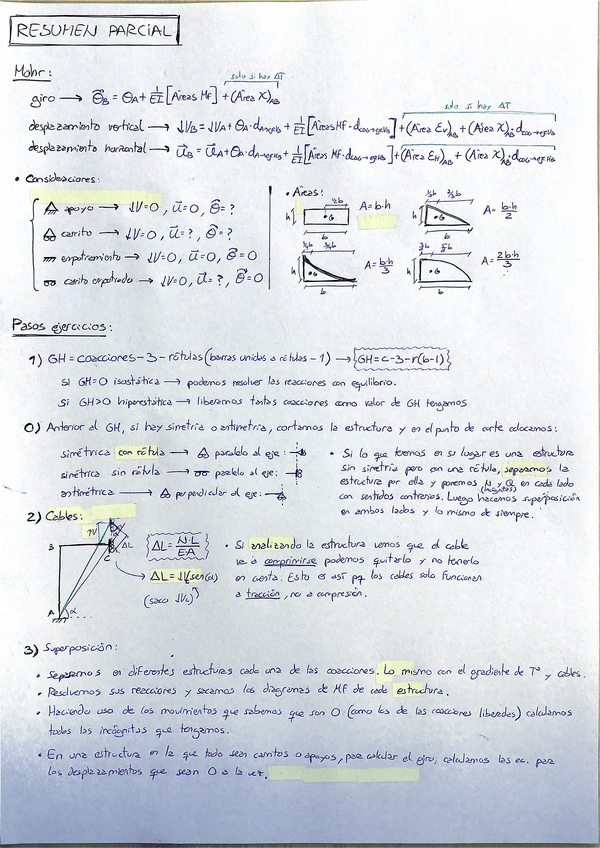 RESUMEN PARCIAL
Mohr:
solo si hay ΔT
giro → θ⃗_B = θ_A + 1/EI [Áreas Mf] + (Área χ)_AB
solo si hay ΔT
desplazamiento vertical → ↓V_B = ↓V_A + θ_A · d_A→ejeVB + 1/EI [Áreas Mf · d_CDG→ejeVB] + (Área ε_V)_AB + (Área χ)_AB · d_CDG→ejeVB
desplazamiento horizontal → u⃗_B = u⃗_A + θ_A · d_A→ejeHB + 1/EI [Áreas Mf · d_CDG→ejeHB] + (Área ε_H)_AB + (Área χ)_AB · d_CDG→ejeHB
• Consideraciones:
apoyo → ↓V=0, u⃗=0, θ⃗=?
carrito → ↓V=0, u⃗=?, θ⃗=?
empotramiento → ↓V=0, u⃗=0, θ⃗=0
carrito empotrado → ↓V=0, u⃗=?, θ⃗=0
• Áreas:
½b
h
G
b
A=b·h
⅓b ⅔b
h
G
b
A= b·h/2
¼b ¾b
h
G
b
A= b·h/3
h
G
b
A= 2b·h/3
Pasos ejercicios:
1) GH = coacciones - 3 - rótulas (barras unidas a rótulas - 1) → GH=c-3-r(b-1)
Si GH=0 isostática → podemos resolver las reacciones con equilibrio.
Si GH>0 hiperestática → liberamos tantas coacciones como valor de GH tengamos
0) Anterior al GH, si hay simetría o antimetría, cortamos la estructura y en el punto de corte colocamos:
simétrica con rótula → paralelo al eje:
simétrica sin rótula → paralelo al eje:
antimétrica → perpendicular al eje:
• Si lo que tenemos en su lugar es una estructura
sin simetría pero con una rótula, separamos la
estructura por ella y ponemos N y Q en cada lado
(incógnitas)
con sentidos contrarios. Luego hacemos superposición
en ambos lados y lo mismo de siempre.
2) Cables:
B
C
ΔL
A
α
ΔL = N·L/E·A
ΔL = ↓V_C sen(α)
(saco ↓V_C)
• Si analizando la estructura vemos que el cable
va a comprimirse podemos quitarlo y no tenerlo
en cuenta. Esto es así pq los cables solo funcionan
a tracción, no a compresión.
3) Superposición:
• Separamos en diferentes estructuras cada una de las coacciones. Lo mismo con el gradiente de Tª y cables.
• Resolvemos sus reacciones y sacamos los diagramas de Mf de cada estructura.
• Haciendo uso de los movimientos que sabemos que son 0 (como los de las coacciones liberadas) calculamos
todas las incógnitas que tengamos.
• En una estructura en la que todo sean carritos o apoyos, para calcular el giro, calculamos las ec. para
los desplazamientos que sean 0 a la vez.